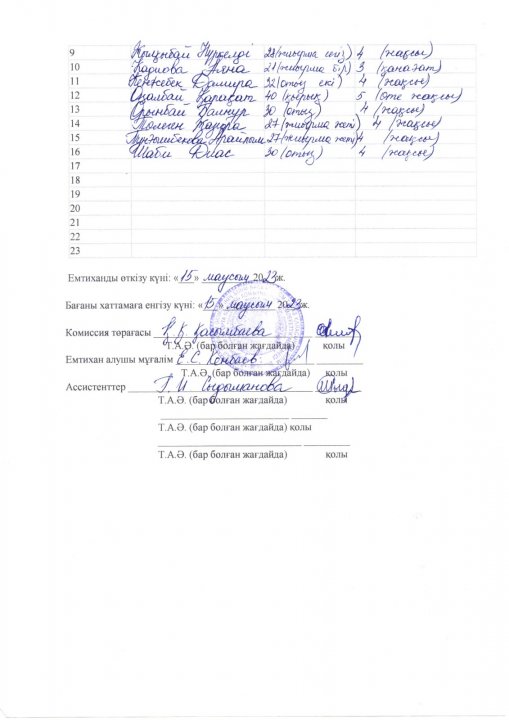 9 Қошанбай Нұркелді 28 (жиырма сегіз) 4 (жақсы)
10 Кадиова Аяна 21 (жиырма бір) 3 (қанағат)
11 Кенжебек Дамира 32 (отыз екі) 4 (жақсы)
12 Оңалбай Қарақат 40 (қырық) 5 (өте жақсы)
13 Орынбай Балнұр 30 (отыз) 4 (жақсы)
14 Төлеген 27 (жиырма жеті) 4 (жақсы)
15 Арайлым 27 (жиырма жеті) 4 (жақсы)
16 Шаби Диас 30 (отыз) 4 (жақсы)
17
18
19
20
21
22
23
Емтиханды өткізу күні: «15» маусым 2023ж.
Бағаны хаттамаға енгізу күні: «15» маусым 2023ж.
Комиссия төрағасы Қ. Қасымбаева
Т.А.Ә. (бар болған жағдайда) қолы
Емтихан алушы мұғалім Е.С. Кенбаев
Т.А.Ә. (бар болған жағдайда) қолы
Ассистенттер Г. И Сыдыманова
Т.А.Ә. (бар болған жағдайда) қолы
Т.А.Ә. (бар болған жағдайда) қолы
Т.А.Ә. (бар болған жағдайда) қолы